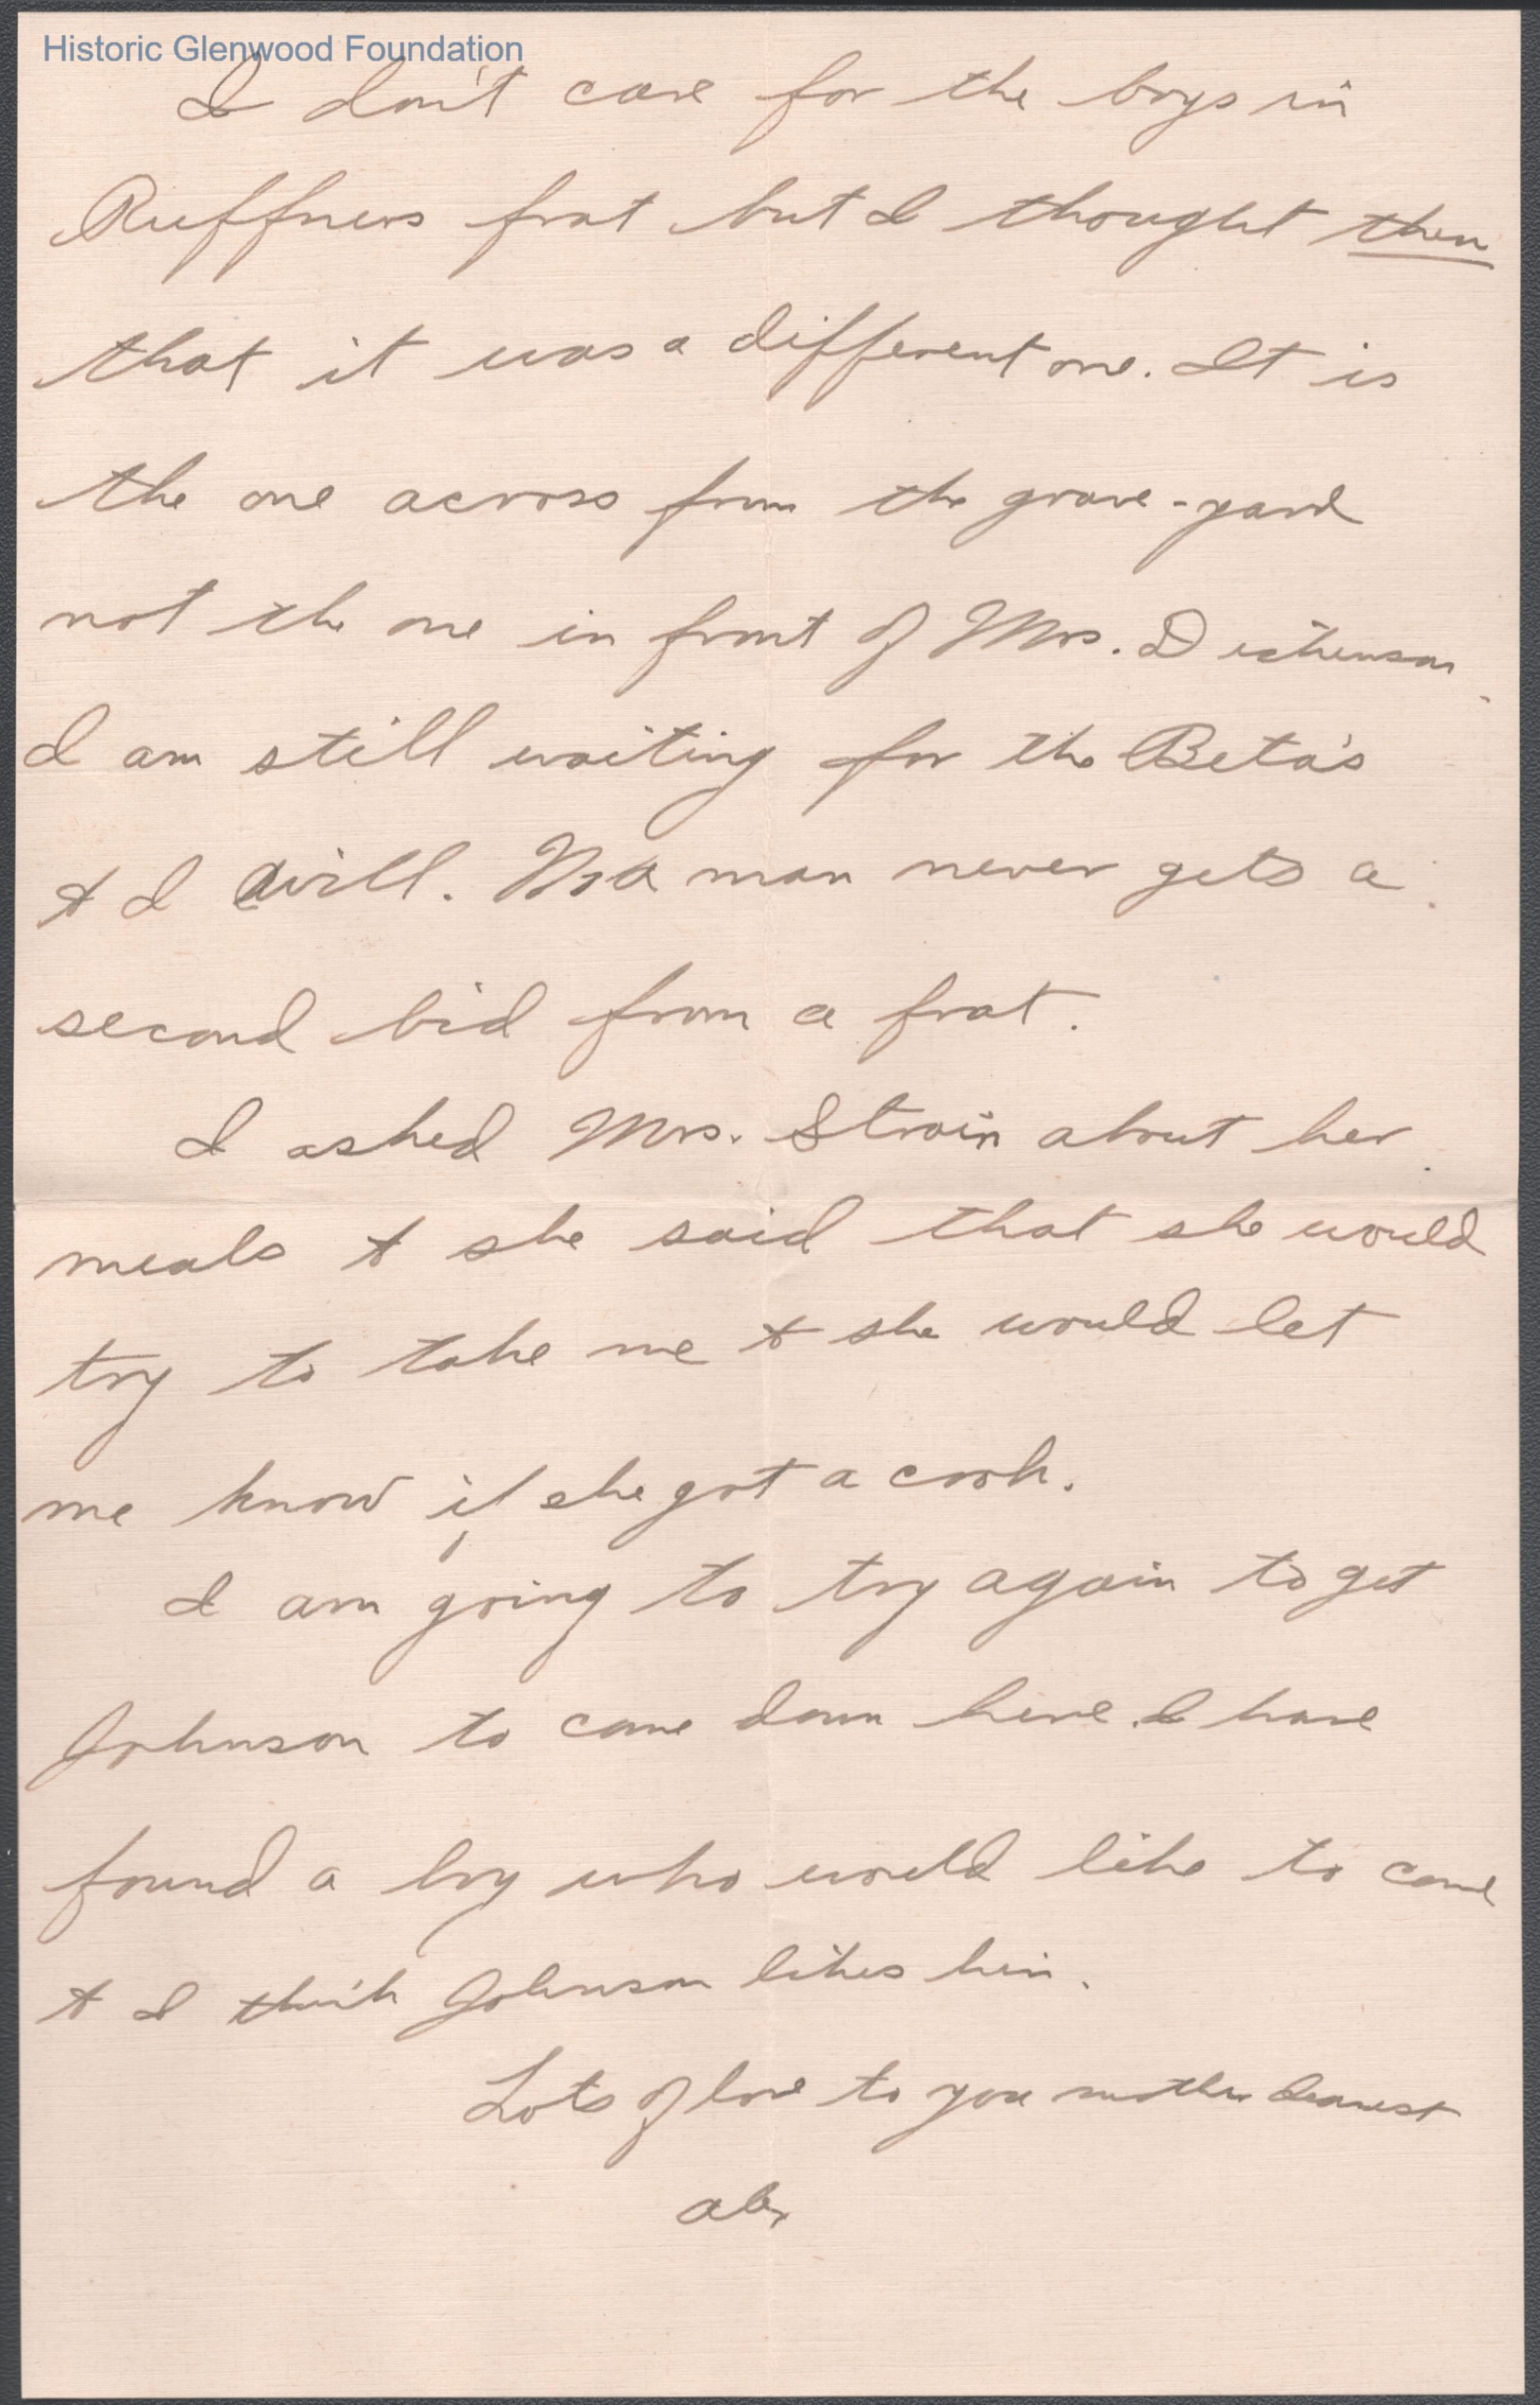 Historic Glenwood Foundation
I don't care for the boys in
Ruffners frat but I thought then
that it was a different one. It is
the one across from the grave-yard
not the one in front of Mrs. Dickenson.
I am still waiting for the Beta's
& I will. A man never gets a
second bid from a frat.
I asked Mrs. Strain about her
meals & she said that she would
try to take me & she would let
me know if she got a cook.
I am going to try again to get
Johnson to come down here. I have
found a boy who would like to come
& I think Johnson likes him.
Lots of love to you mother dearest
Alex